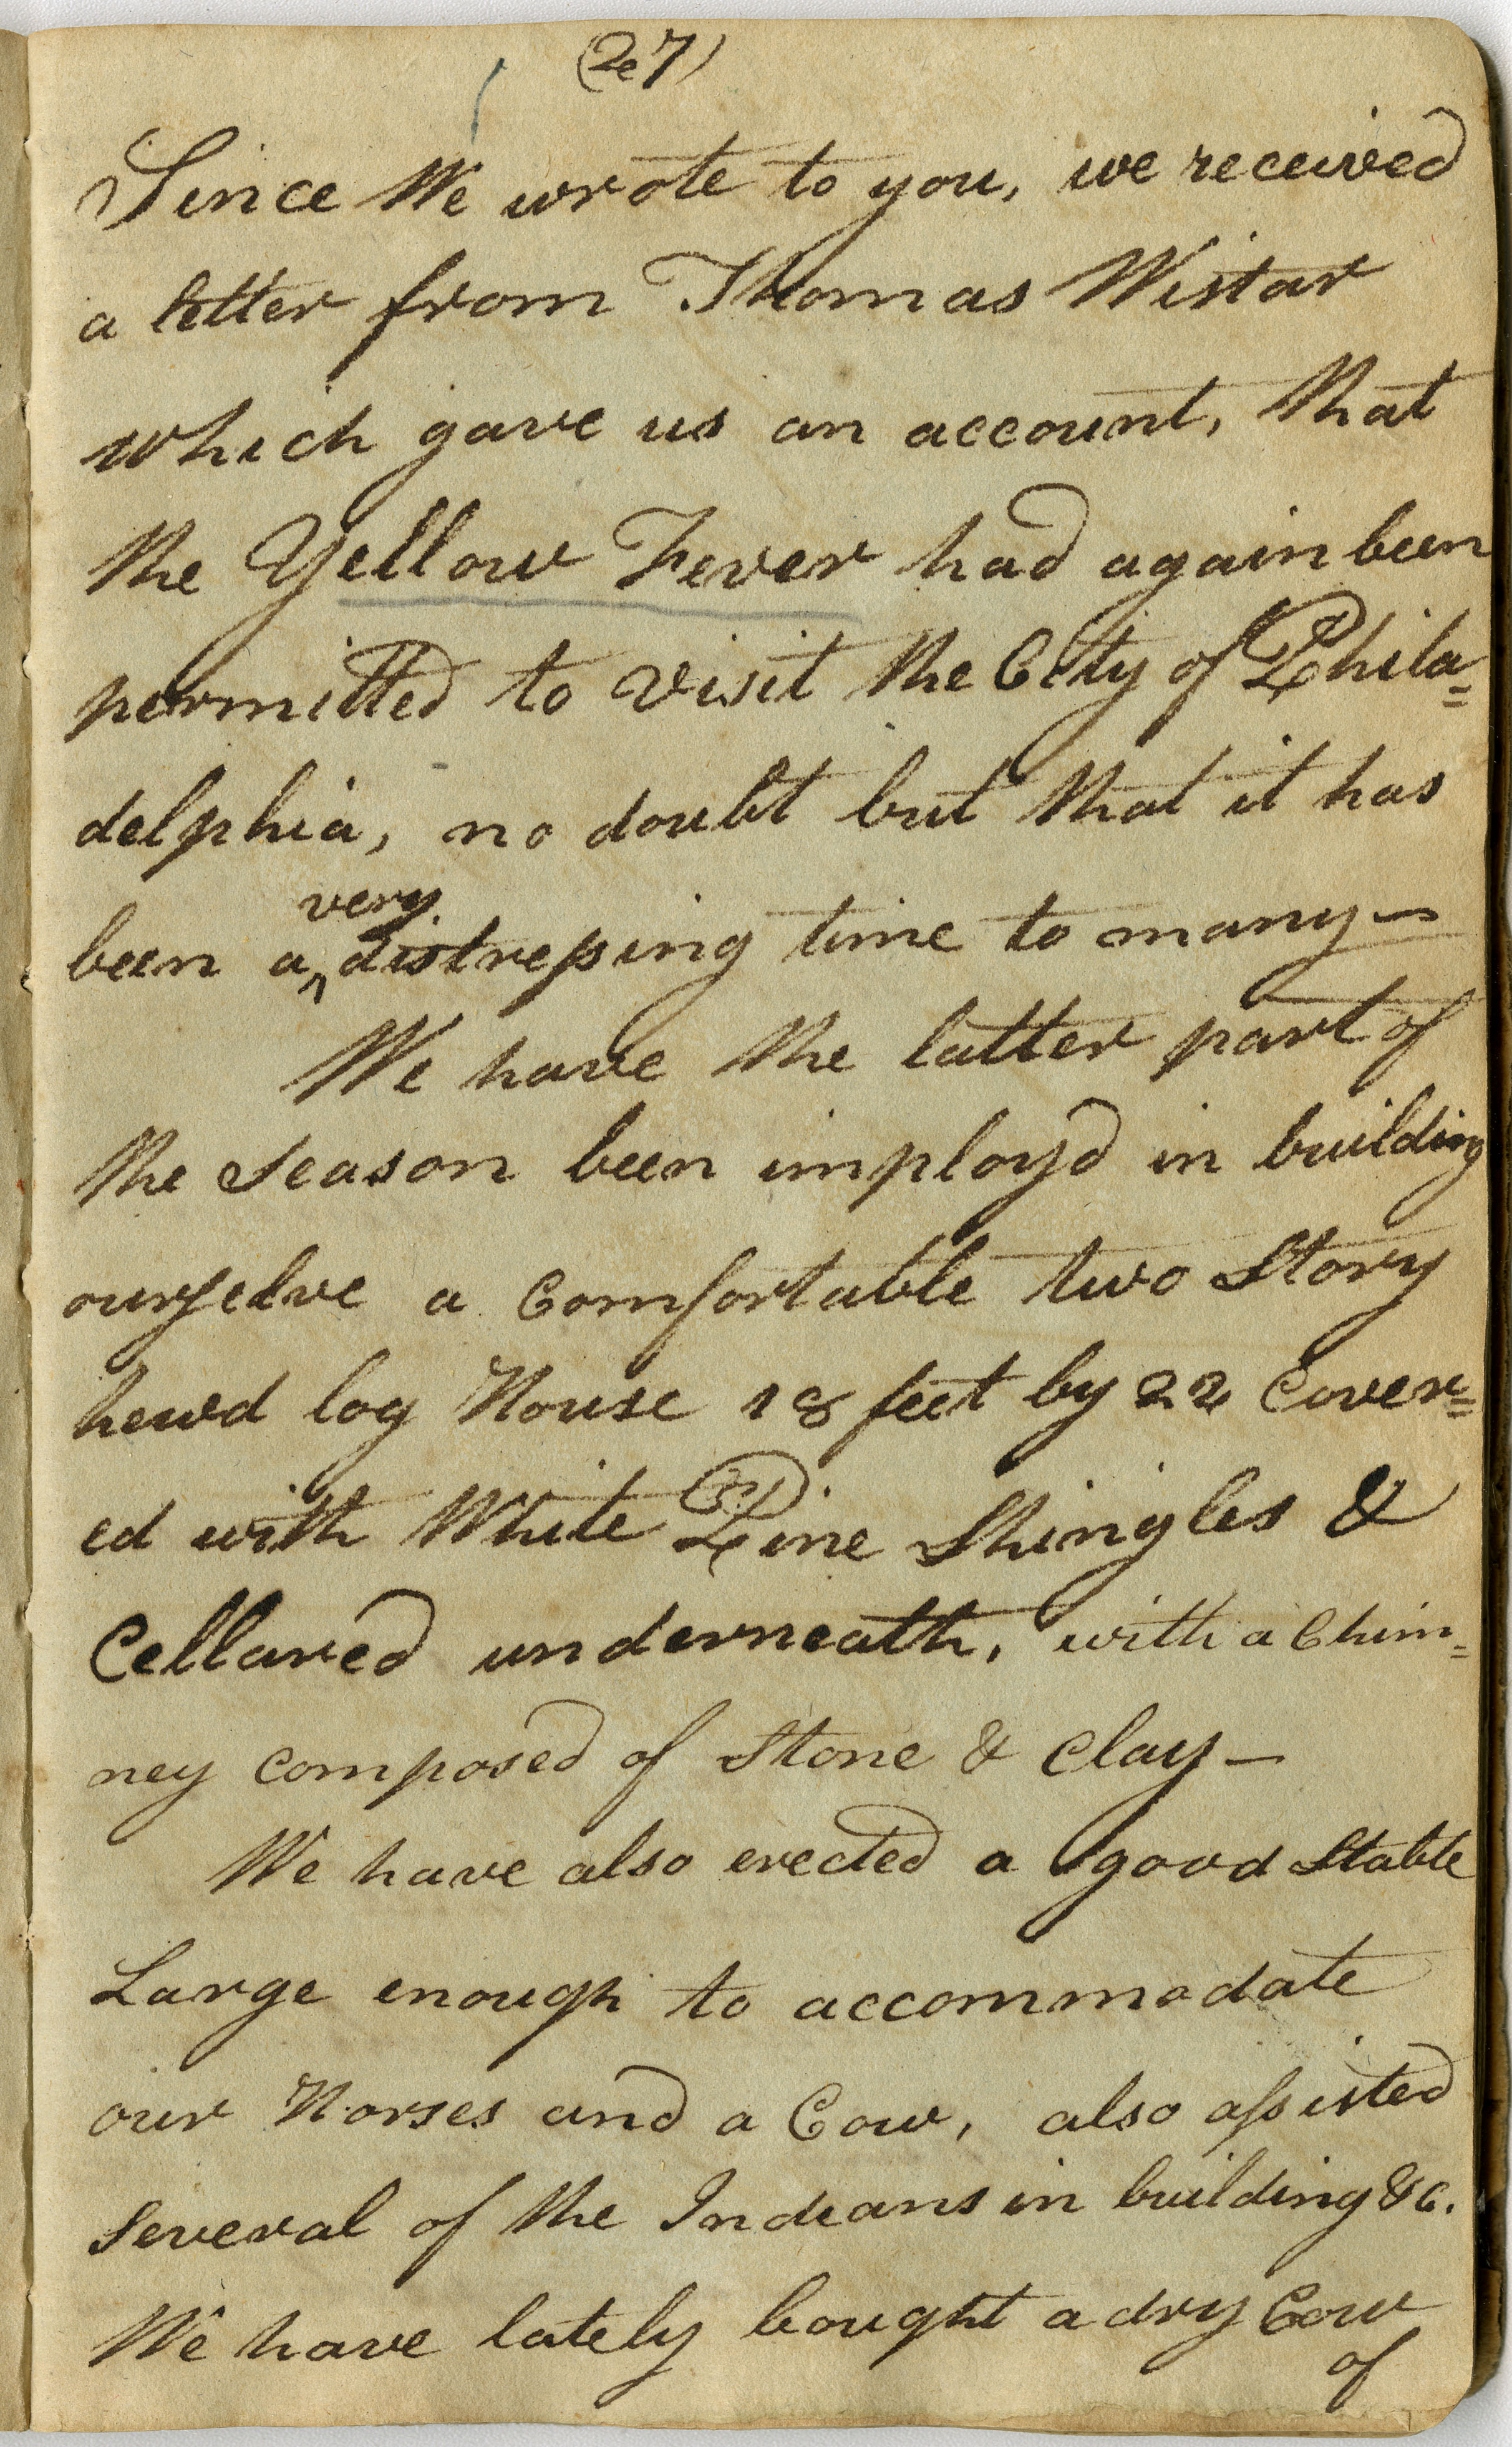 (27)
Since We wrote to you, we received
a letter from Thomas Wistar
which gave us an account, that
the Yellow Fever had again been
permitted to visit the City of Phila=
delphia, no doubt but that it has
very
been a distressing time to many—
We have the latter part of
the Season been imploy'd in building
ourselve a Comfortable two Story
hewd log House 18 feet by 22 Cover=
ed with White Pine Shingles &
Cellared underneath, with a Chim=
ney composed of Stone & Clay—
We have also erected a good Stable
Large enough to accommodate
our Horses and a Cow, also assisted
Several of the Indians in building &c.
We have lately bought a dry Cow
of